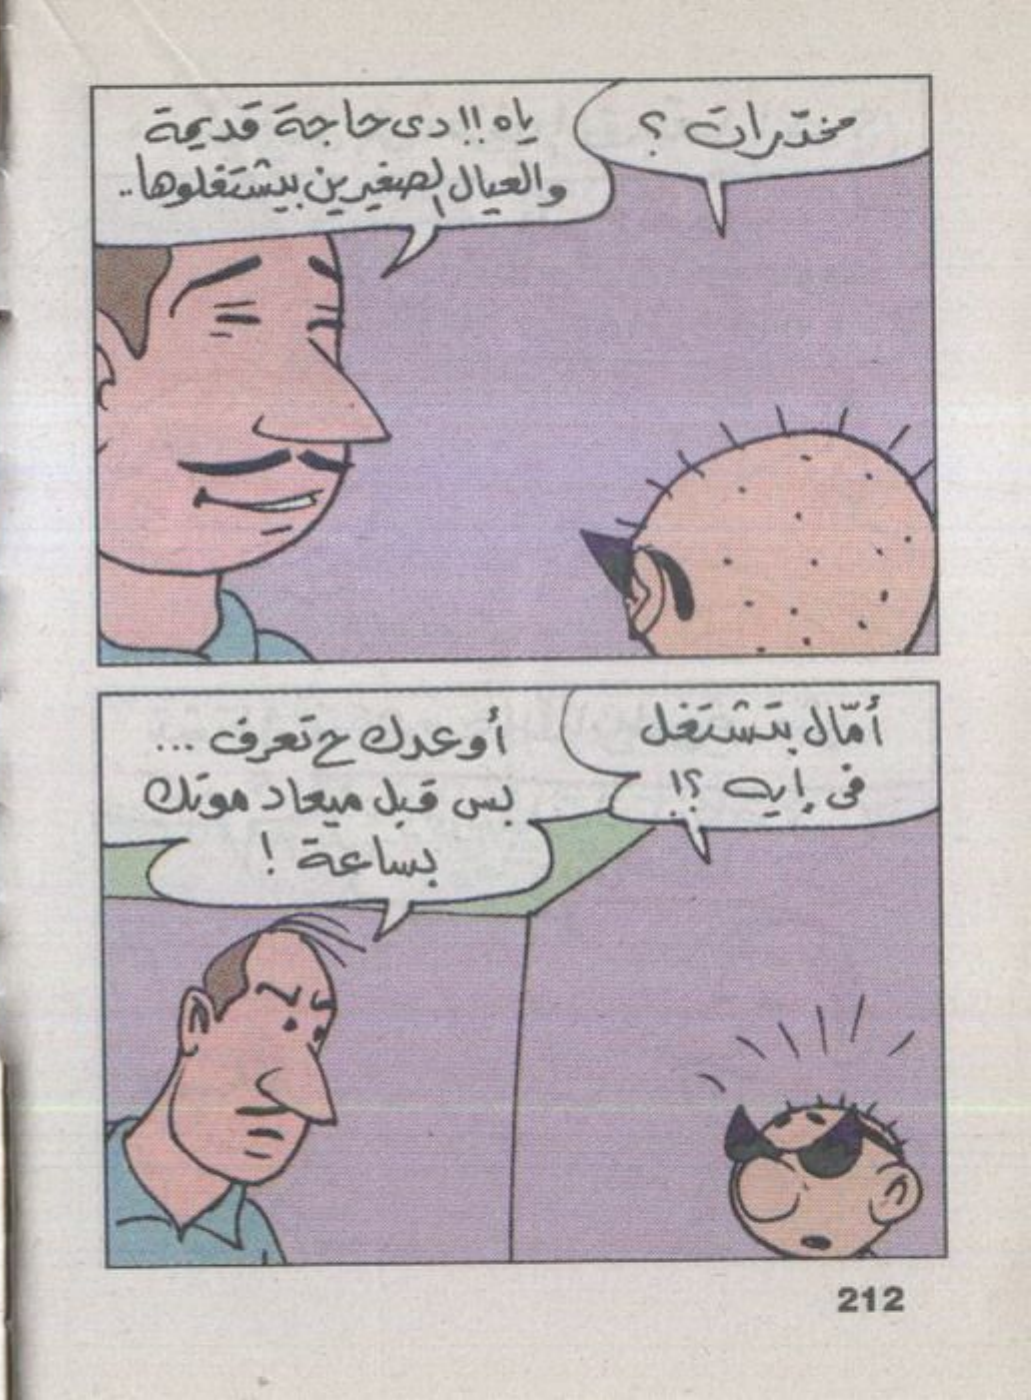 مخدّرات ؟
ياه !! دى حاجة قديمة
والعيال الصغيرين بيشتغلوها..
أمّال بتشتغل
فى إيه ؟!
أوعدك ح تعرف ...
بس قبل ميعاد موتك
بساعة !
212